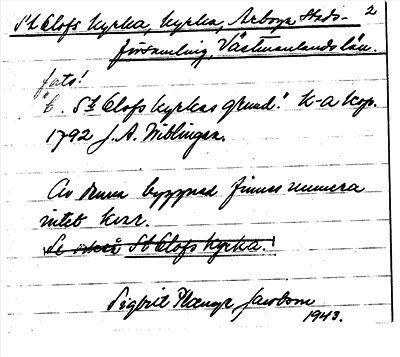 St Olofs Kyrka, Kyrka, Arboga Stads- 2
församling, Västmanlands län.
foto!
"E. St Olofs Kyrkas grund." K-a kop.
1792 J. A. Wiblingen.
Av denna byggnad finnes numera
intet kvar.
Se även St Olofs Kyrka.
Sigbrit Jacobson
1943.